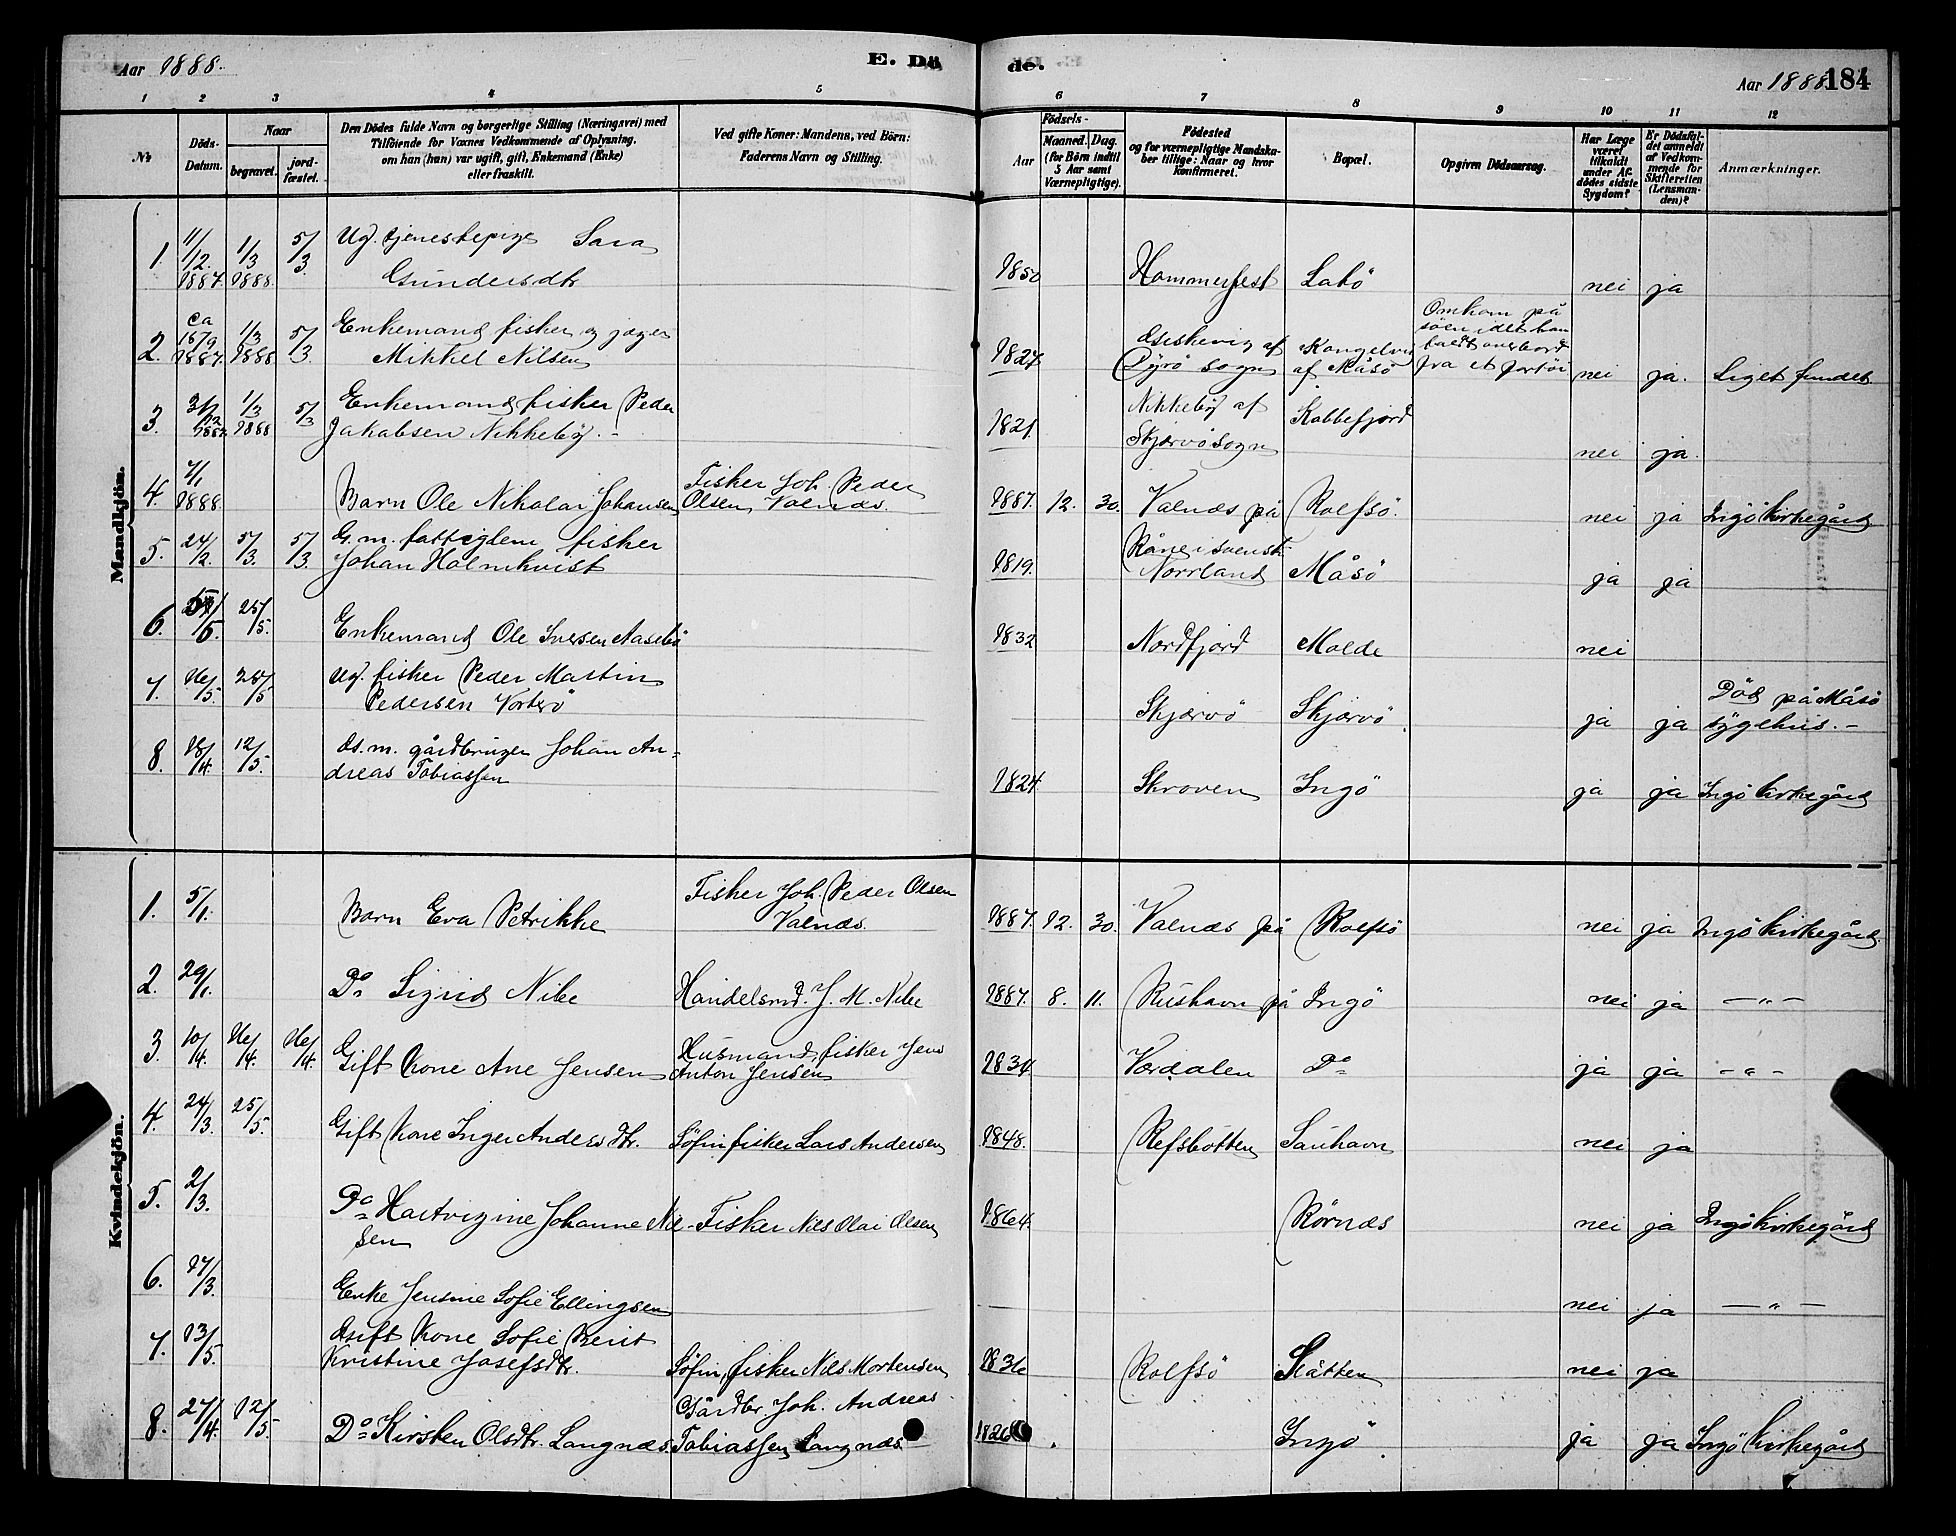 Aar 1888.
E. Dö
de.
Aar 1888
184
1 2 3 4 5 6 7 8 9 10 11 12
Nr
Döds-
Datum.
Naar
begravet.
jord-
fæstet.
Den Dödes fulde Navn og borgerlige Stilling (Næringsvei) med
Tilföiende for Voxnes Vedkommende af Oplysning,
om han (hun) var ugift, gift, Enkemand (Enke)
eller fraskilt.
Ved gifte Koner: Mandens, ved Börn:
Faderens Navn og Stilling.
Födsels-
Aar
Maaned. Dag.
(for Börn indtil
5 Aar samt
Værnepligtige).
Födested
og for værnepligtige Mandska-
ber tillige: Naar og hvor
konfirmeret.
Bopæl.
Opgiven Dödsaarsag.
Har Læge
været
tilkaldt
under Af-
dödes sidste
Sygdom?
Er Dödsfal-
det anmeldt
af Vedkom-
mende for
Skifteretten
(Lensman-
den)?
Anmærkninger.
Mandkjön.
1. 11/12. 1887. 1/3 1888. 5/3. Ug. tjenestepige Sara
Gundersdtr 1850 Hammerfest Latö nei ja
2. ca 1887. 1/3 1888. 5/3. Enkemand fisker og jæger
Mikkel Nilsen 1827 af
sogn af Måsö
Omkom på
söen idet han
faldt overbord
fra et fartöi nei ja. Liget fundet
3. 1/3 1888 5/3 Enkemand fisker Peder
Jakobsen Nikkeby. - 1821. Nikkeby af
Skjærvö sogn Kobbefjord nei ja.
4. 7/1 1888. Barn Ole Nikolai Johansen Fisker Joh. Peder
Olsen Valnæs. 1887. 12. 30. Valnæs på Rolfsö. nei ja Ingö kirkegård
5. 24/2. 5/3. 5/3. G.m. fattiglem fisker
Johan Holmkvist 1819. Råne i svensk
Norrland Måsö ja ja
6. /5. 25/5. Enkemand Ole Iversen Aasebö 1832 Nordfjord Molde nei
7. 16/5. 25/5 Ug. fisker Peder Martin
Pedersen Vorterö Skjærvö Skjærvö. ja ja Död på Måsö
sygehus. -
8. 18/4. 12/5. G.m. gårdbruger Johan An=
dreas Tobiassen 1824 Skroven Ingö ja ja Ingö kirkegård
Kvindekjön.
1. 5/1. Barn Eva Petrikke Fisker Joh. Peder Olsen
Valnæs. 1887. 12. 30. Valnæs på Rolfsö nei ja Ingö kirkegård.
2. 29/1. Do Sigrid Nibe Handelsmd. J. M. Nibe 1887. 8. 11. Rushavn på Ingö nei ja —„—
3. 10/4. 16/4. 16/4. Gift kone Ane Jensen Husmand, fisker Jens
Anton Jensen 1834 Værdalen Do ja ja -„-
4. 24/3. 25/5. Gift kone Inger Andersdtr. Söfin, fisker Lars Andersen 1848. Refsbotten Sauhavn nei ja
5. 2/3. Do Hartvigine Johanne Nil-
sen Fisker Nils Olai Olsen 1864 Rörnæs nei ja Ingö kirkegård
6. 17/3. Enke Jensine Sofie Ellingsen — nei ja —„—
7. 13/5. Gift kone Sofie Berit
Kristine Josefsdtr. Söfin, fisker Nils Mortensen 1836 Rolfsö Slåtten nei ja
8. 27/4. 12/5. Do Kirsten Olsdtr. Langnæs Gårdbr. Joh. Andreas
Tobiassen Langnæs 1826 Ingö. ja ja Ingö kirkegård